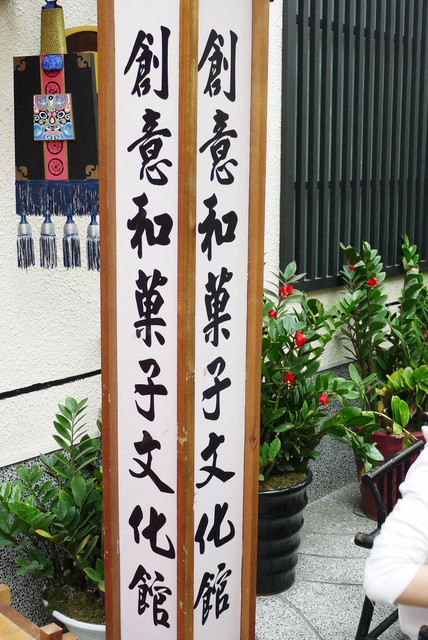 創意和菓子文化館
創意和菓子文化館